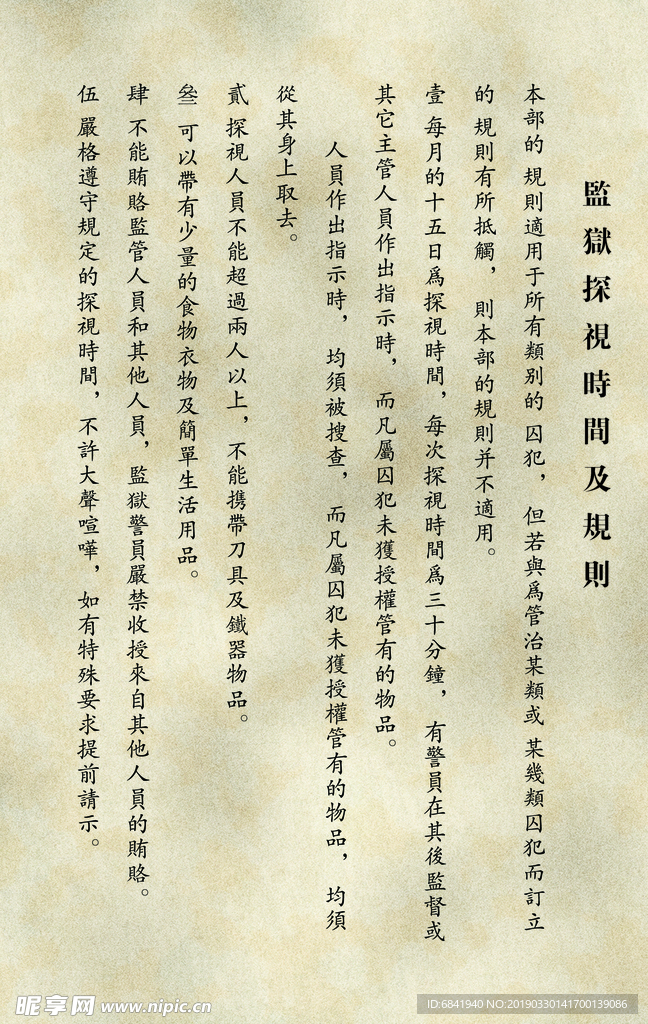 監獄探視時間及規則
本部的 規則適用于所有類别的 囚犯， 但若與爲管治某類或 某幾類囚犯而訂立
的 規則有所抵觸， 則本部的規則并不適用。
壹 每月的十五日爲探視時間，每次探視時間爲三十分鐘， 有警員在其後監督或
其它主管人員作出指示時， 而凡屬囚犯未獲授權管有的物品。
人員作出指示時， 均須被搜查， 而凡屬囚犯未獲授權管有的物品， 均須
從其身上取去。
貳 探視人員不能超過兩人以上，不能携帶刀具及鐵器物品。
叄 可以帶有少量的食物衣物及簡單生活用品。
肆 不能賄賂監管人員和其他人員，監獄警員嚴禁收授來自其他人員的賄賂。
伍 嚴格遵守規定的探視時間，不許大聲喧嘩，如有特殊要求提前請示。
昵享网 www.nipic.cn
ID:6841940 NO:20190330141700139086